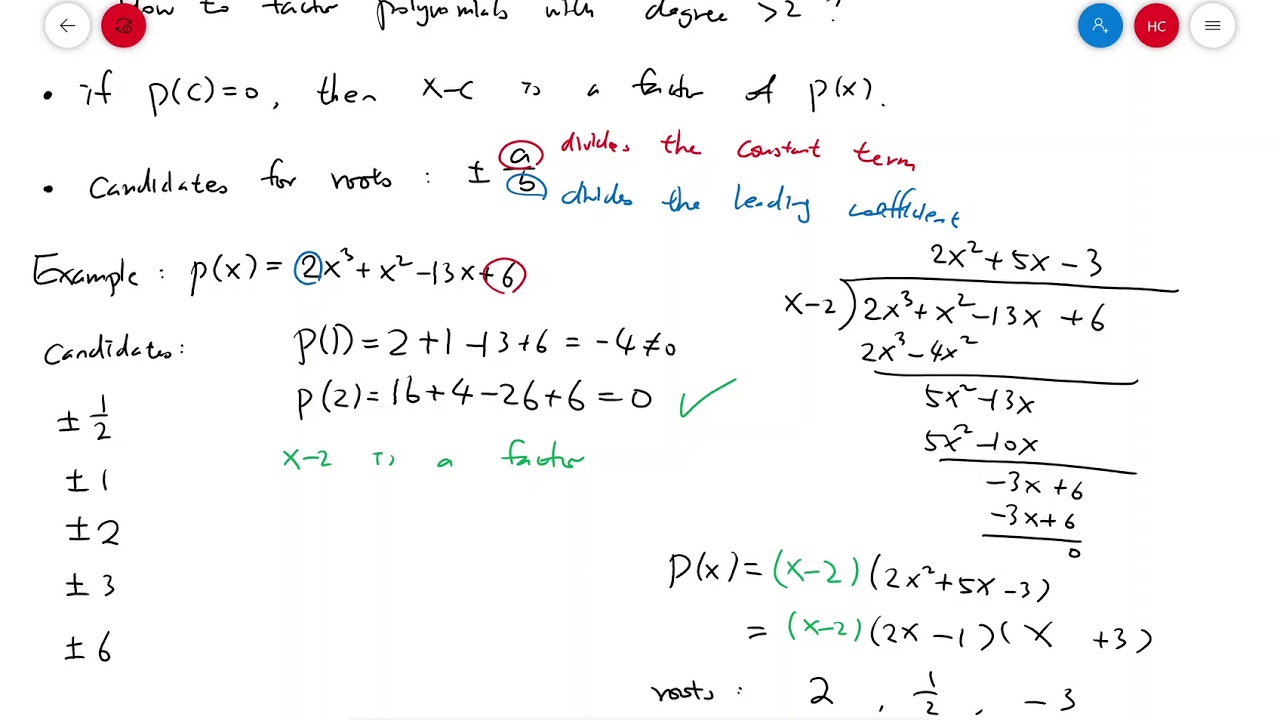 How to factor polynomials with degree >2 ?
HC
• if p(c)=0, then x-c is a factor of p(x).
• Candidates for roots : ± a/b
a divides the constant term
b divides the leading coefficient
Example : p(x) = 2x³+x²-13x+6
Candidates:
± 1/2
± 1
± 2
± 3
± 6
p(1)=2+1-13+6 = -4≠0
p(2)=16+4-26+6=0 ✓
x-2 is a factor
2x²+5x-3
x-2) 2x³+x²-13x+6
2x³-4x²
5x²-13x
5x²-10x
-3x+6
-3x+6
0
P(x)=(x-2)(2x²+5x-3)
= (x-2)(2x-1)(x +3)
roots : 2 , 1/2 , -3